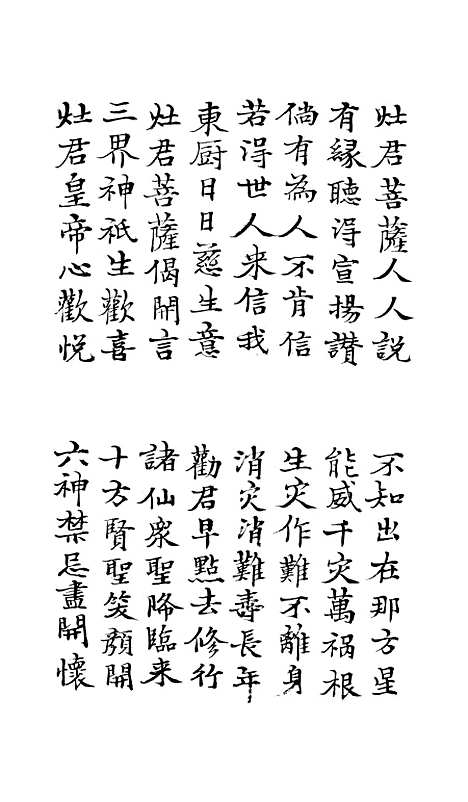 灶君菩薩人人説
不知出在那方星
有縁聽淂宣揚讃
能威千灾萬禍根
倘有為人不肯信
生灾作難不離身
若淂世人来信我
消灾消難壽長年
東厨日日慈生意
勸君早點去修行
灶君菩薩偈開言
諸仙衆聖降臨来
三界神祇生歡喜
十方賢聖笑顔開
灶君皇帝心歡悦
六神禁忌盡開懷